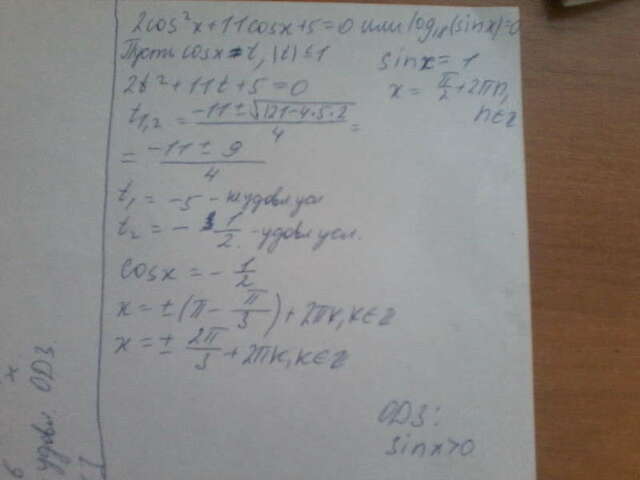 2cos²x+11cosx+5=0 или log₁₈(sinx)=0
Пусть cosx=t, |t|≤1
2t²+11t+5=0
t₁,₂ = (-11±√(121-4*5*2))/4 =
= (-11±9)/4
t₁ = -5 - неудовл усл
t₂ = - 1/2 - удовл усл.
cosx = - 1/2
x = ±(π - π/3) + 2πk, k∈z
x = ± 2π/3 + 2πk, k∈z
sinx = 1
x = π/2 + 2πn,
n∈z
ОДЗ:
sinx>0
x
удовл. ОДЗ
в